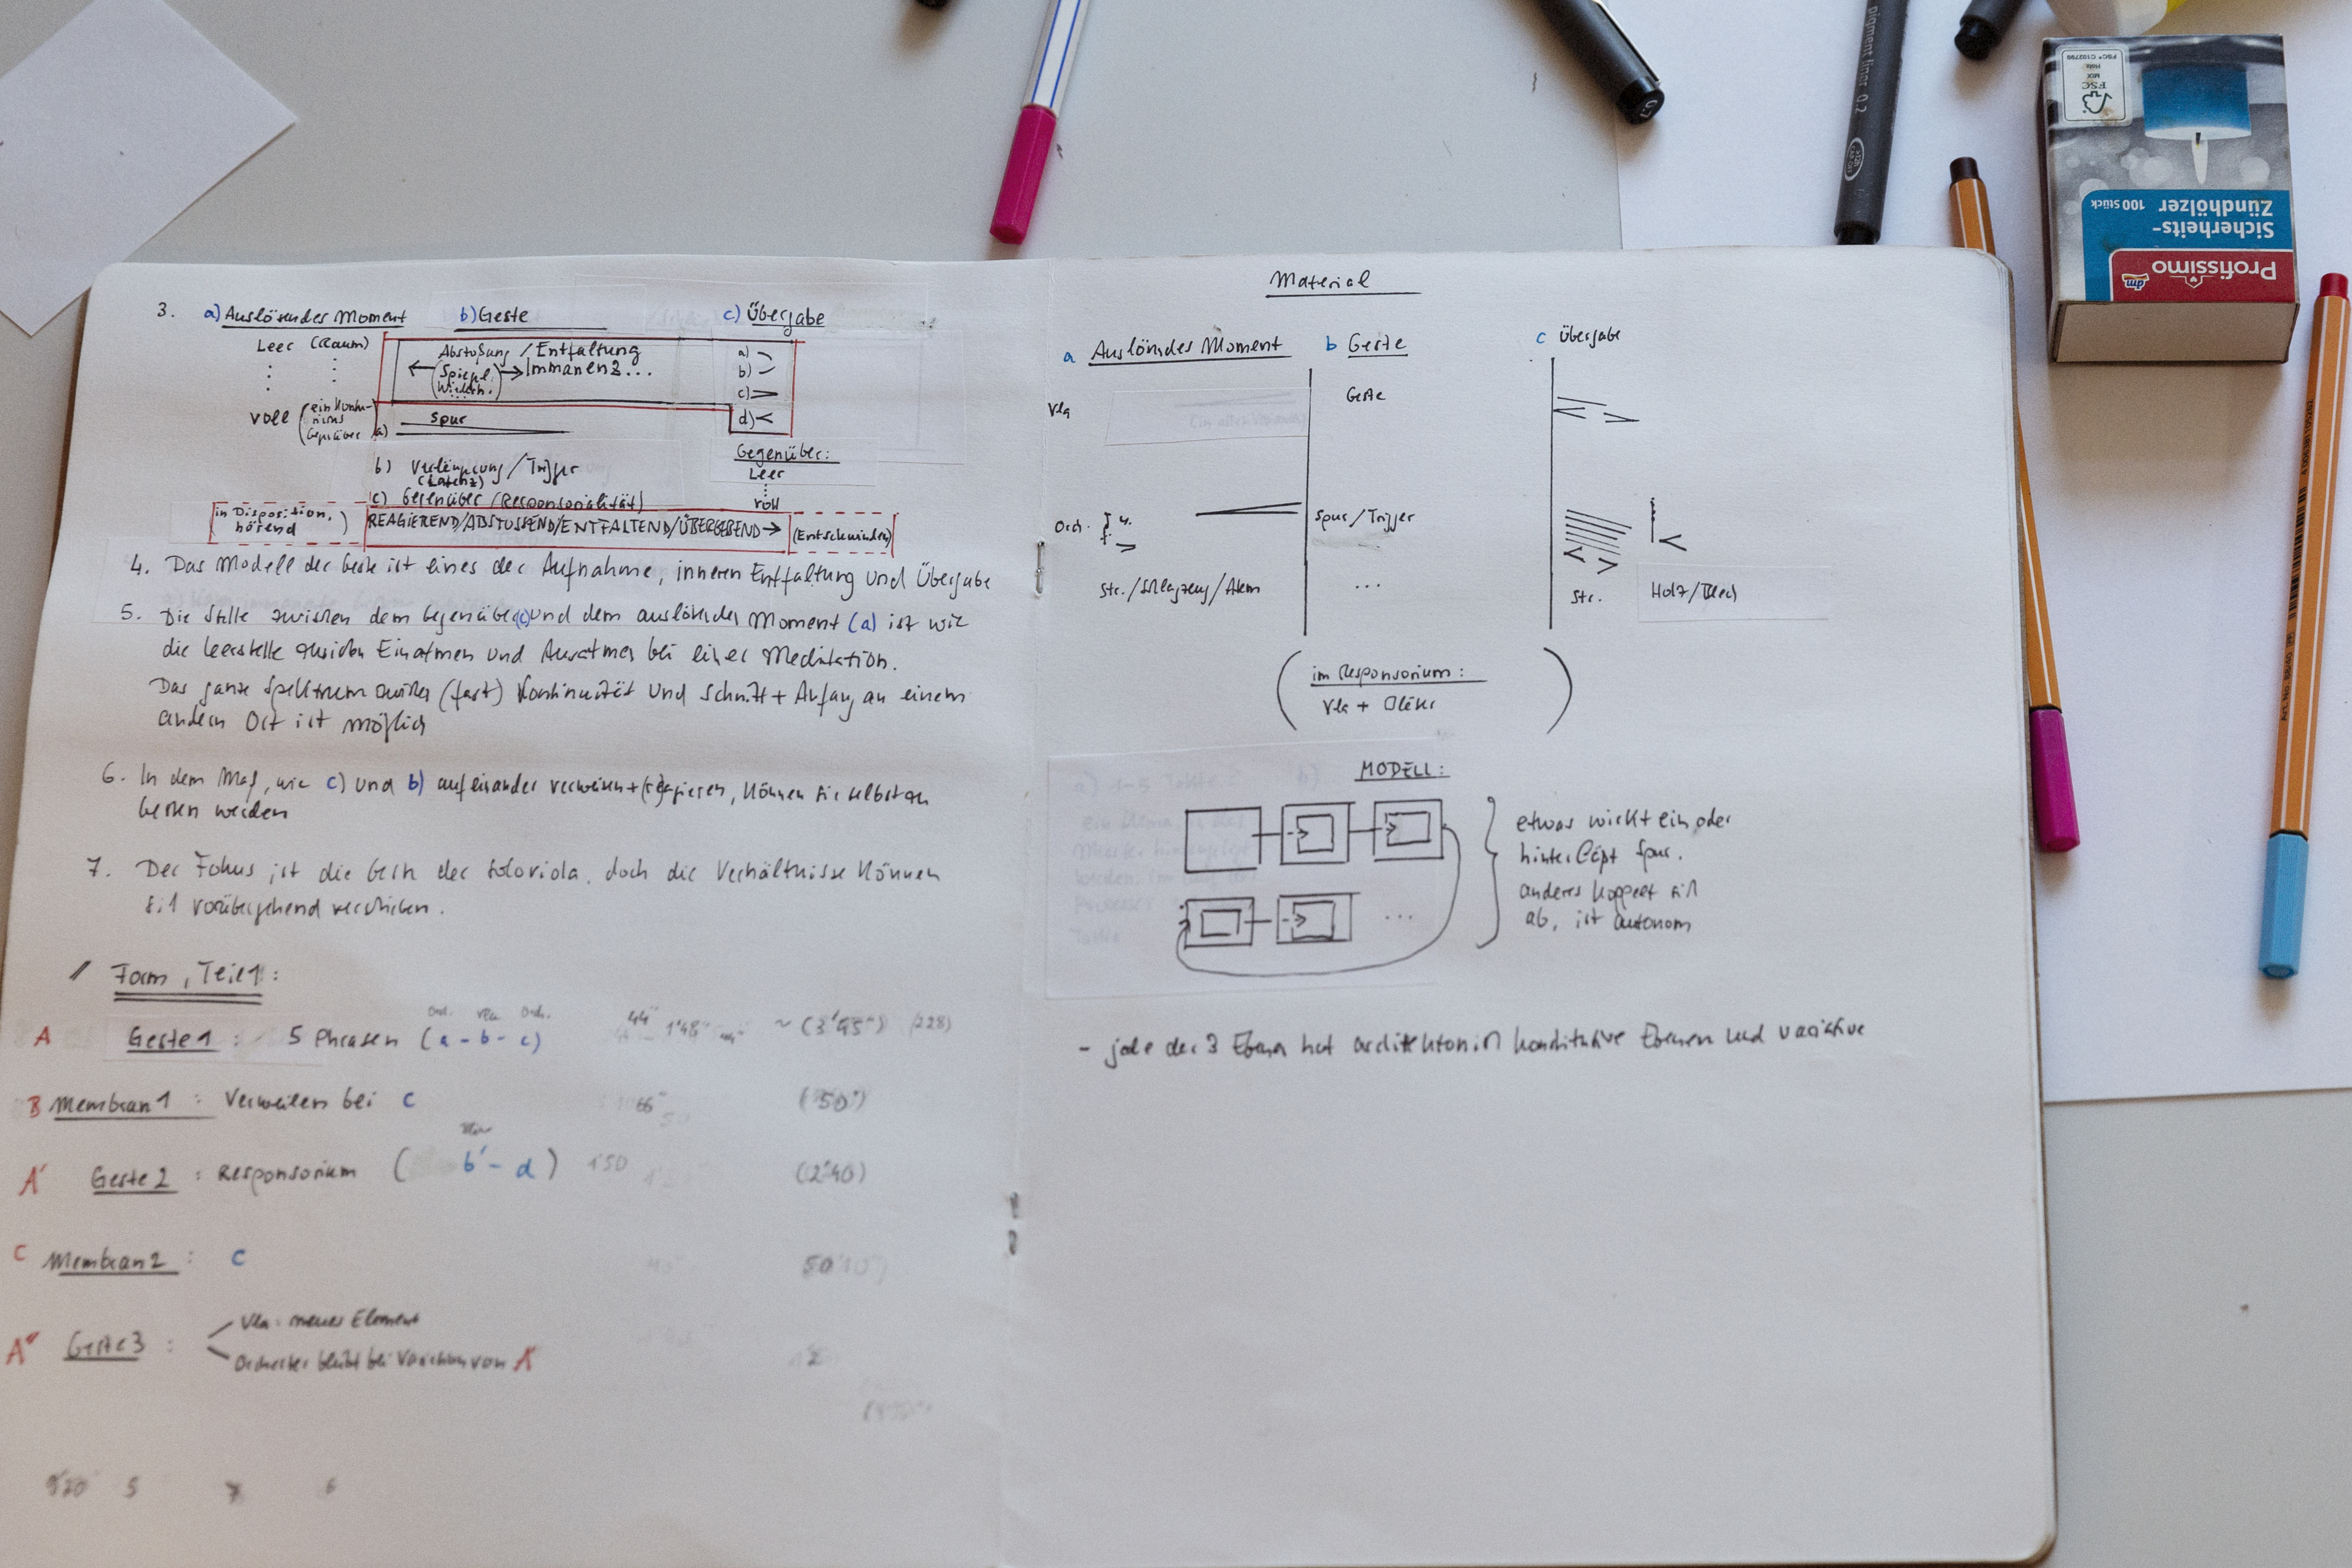 3. a) Auslösendes Moment b) Geste c) Übergabe
Leer (Raum)
Abstoßung / Entfaltung
(Spiegel, Immanenz...
Wiederh.)
a)
b)
c)
d)
voll
Spur
a)
b) Verlängerung / Trigger
(Latenz)
c) Gegenüber (Responsorialität)
Gegenüber:
Leer
voll
in Disposition,
hörend
REAGIEREND/ABSTOSSEND/ENTFALTEND/ÜBERGEBEND → (Entschwinden)
4. Das Modell der Geste ist eines der Aufnahme, inneren Entfaltung und Übergabe
5. Die Stelle zwischen dem Gegenüber (c) und dem auslösenden Moment (a) ist wie
die Leerstelle zwischen Einatmen und Ausatmen bei einer Meditation.
Das ganze Spektrum zwischen (fast) Kontinuität und Schnitt + Anfang an einem
andern Ort ist möglich
6. In dem Maß, wie c) und b) aufeinander verweisen + (re)agieren, können sie selbst zu
Gesten werden
7. Der Fokus ist die Geste der Soloviola, doch die Verhältnisse können
sich vorübergehend verschieben.
Form, Teil 1:
A Geste 1 : 5 Phrasen (a - b - c) 44" 1'48" ~ (3'45") (228)
Orch. Vla Orch.
B Membran 1 : Verweilen bei c 66" (50")
A' Geste 2 : Responsorium ( b' - d ) 1'50 (2'40)
C Membran 2 : c 50
A'' Geste 3 :
Vla: neues Element
Orchester bleibt bei Variation von A'
5 7 6
Material
a Auslösendes Moment b Geste c Übergabe
Vla
Geste
Orch.
Spur / Trigger
...
Str. / Schlagzeug / Atem
Str.
Holz / Blech
(im Responsorium:
Vla + Bläser)
MODELL:
etwas wirkt ein oder
hinterläßt Spur.
anderes koppelt sich
ab, ist autonom
...
- jede der 3 Ebenen hat architektonisch konstitutive Ebenen und variative
pigment liner 0.2
FSC
MIX
FSC® C102799
Sicherheits-
Zündhölzer 100 Stück
dm Profissimo